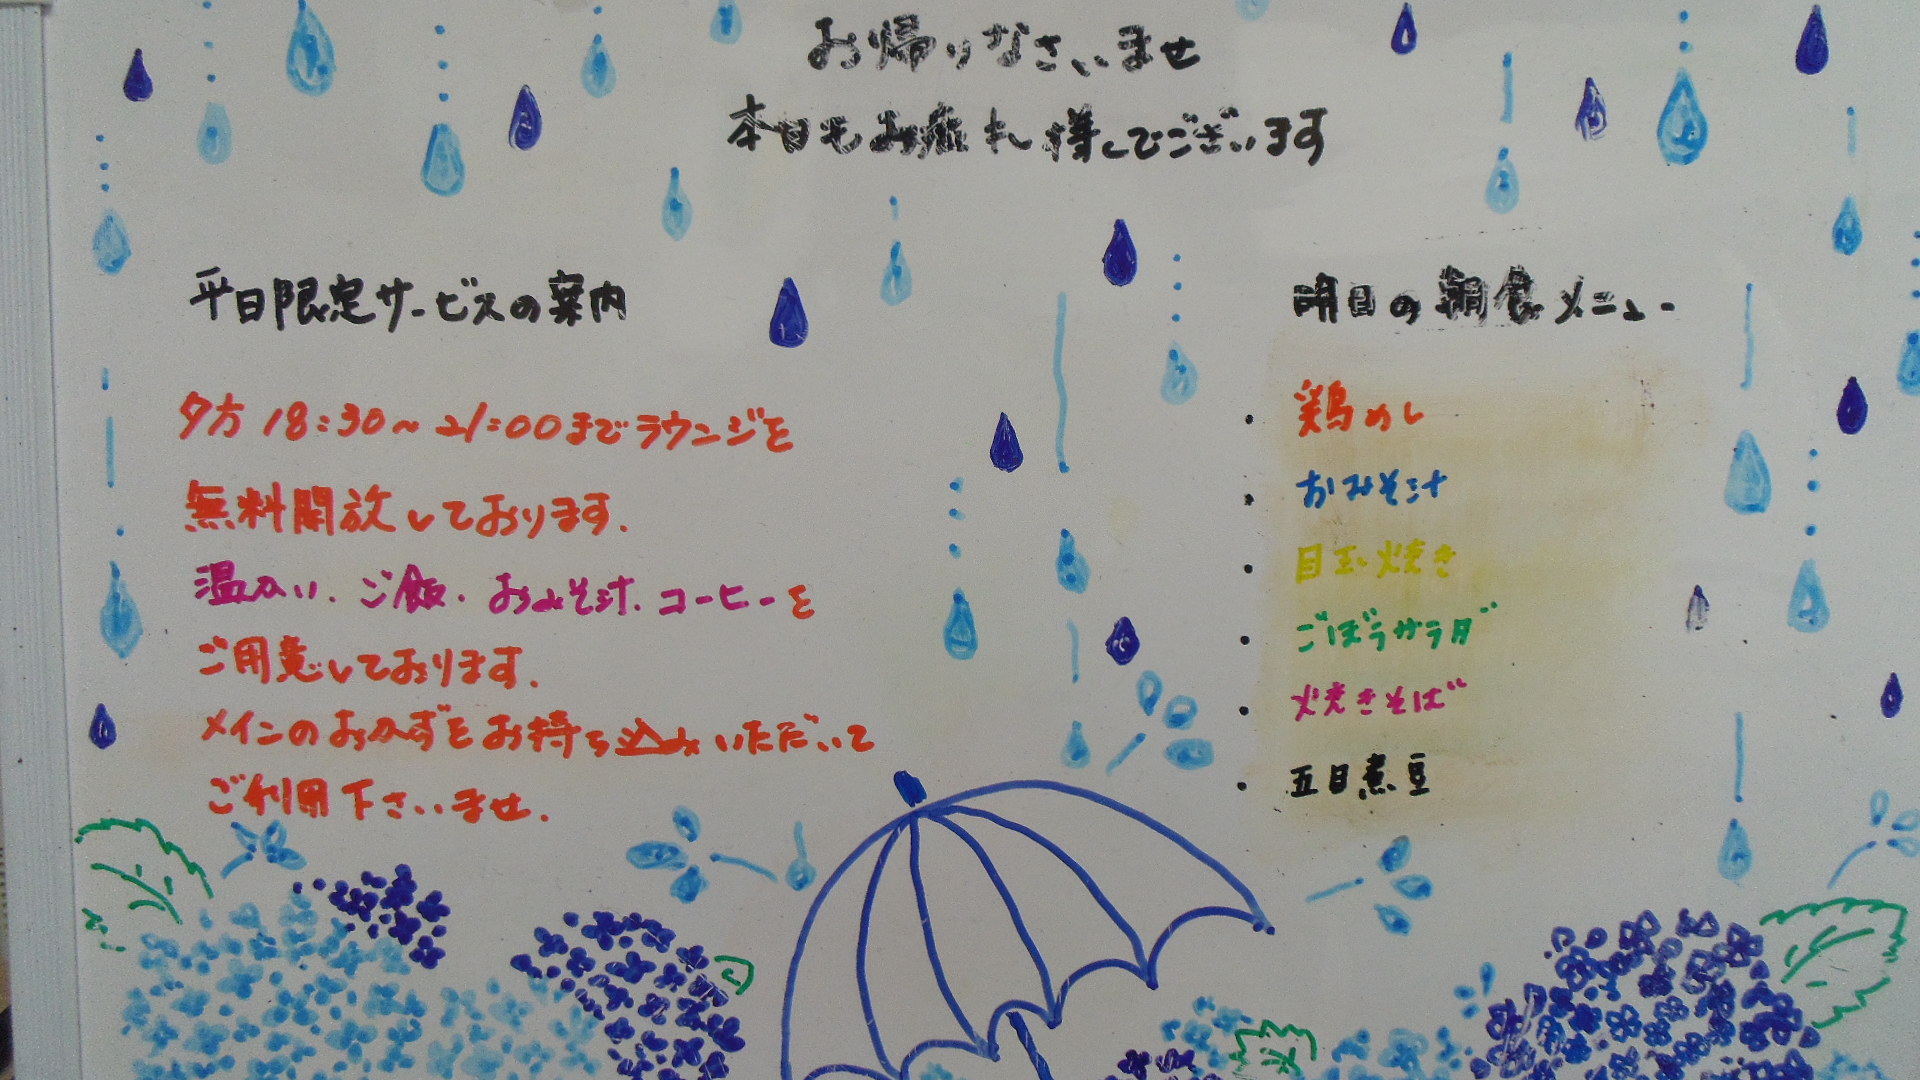 お帰りなさいませ
本日もお疲れ様でございます
平日限定サービスの案内
夕方18:30～21:00までラウンジを
無料開放しております.
温かい.ご飯.おみそ汁.コーヒーを
ご用意しております.
メインのおかずをお持ち込みいただいて
ご利用下さいませ.
明日の朝食メニュー
・鶏めし
・おみそ汁
・目玉焼き
・ごぼうサラダ
・焼きそば
・五目煮豆